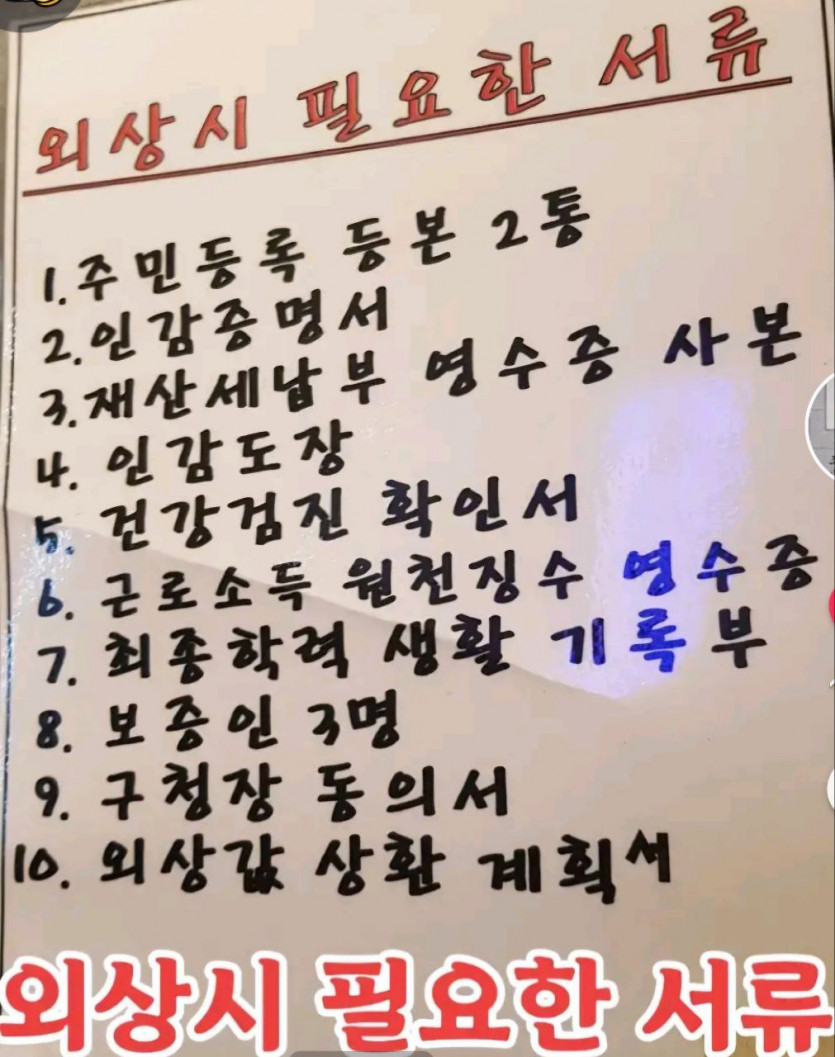 외상시 필요한 서류
1. 주민등록 등본 2통
2. 인감증명서
3. 재산세납부 영수증 사본
4. 인감도장
5. 건강검진 확인서
6. 근로소득 원천징수 영수증
7. 최종학력 생활 기록부
8. 보증인 3명
9. 구청장 동의서
10. 외상값 상환 계획서
외상시 필요한 서류